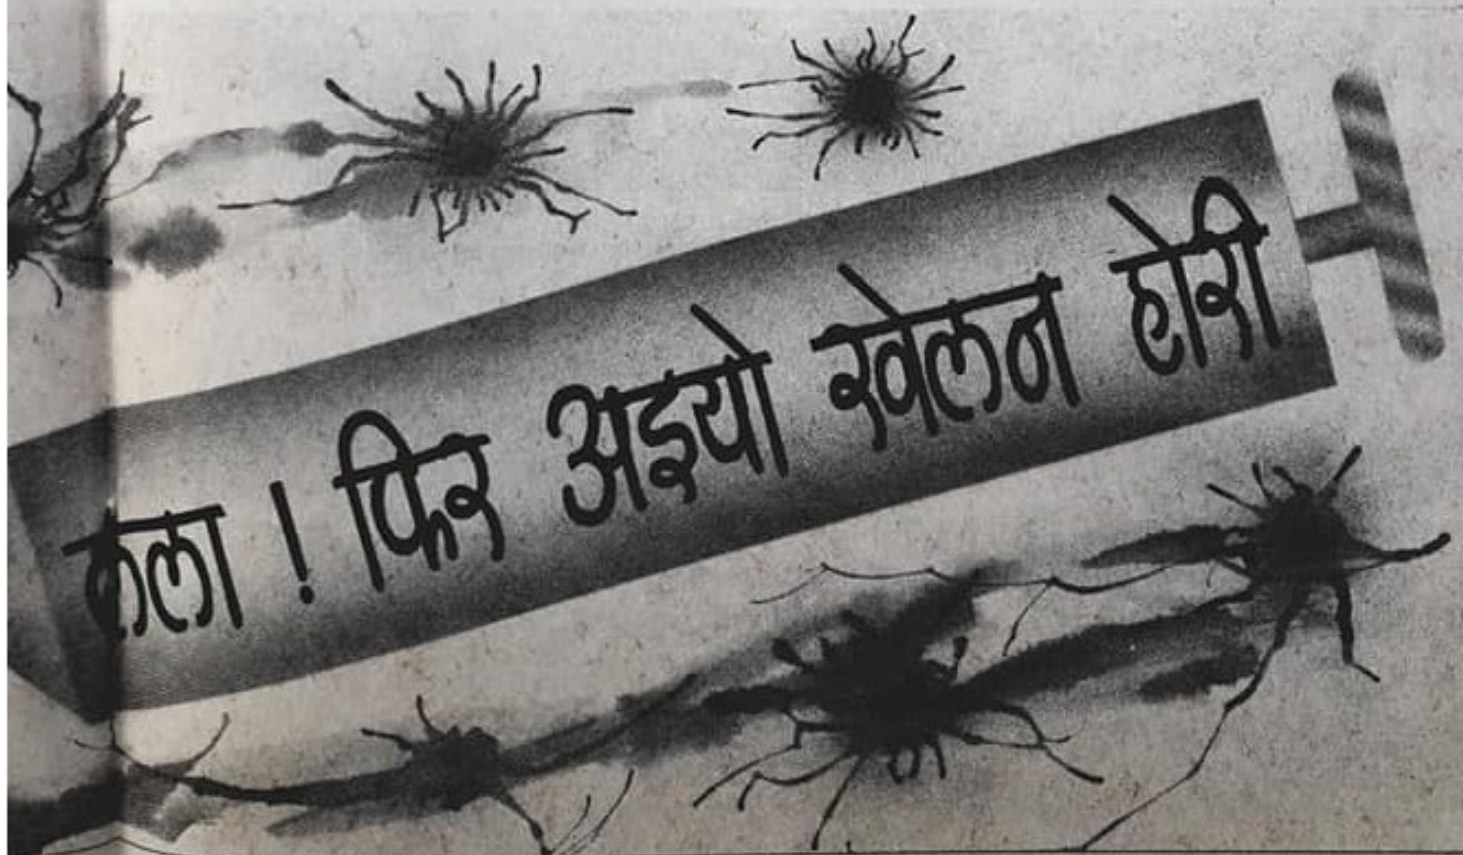 लला ! फिर अइयो खेलन होरी